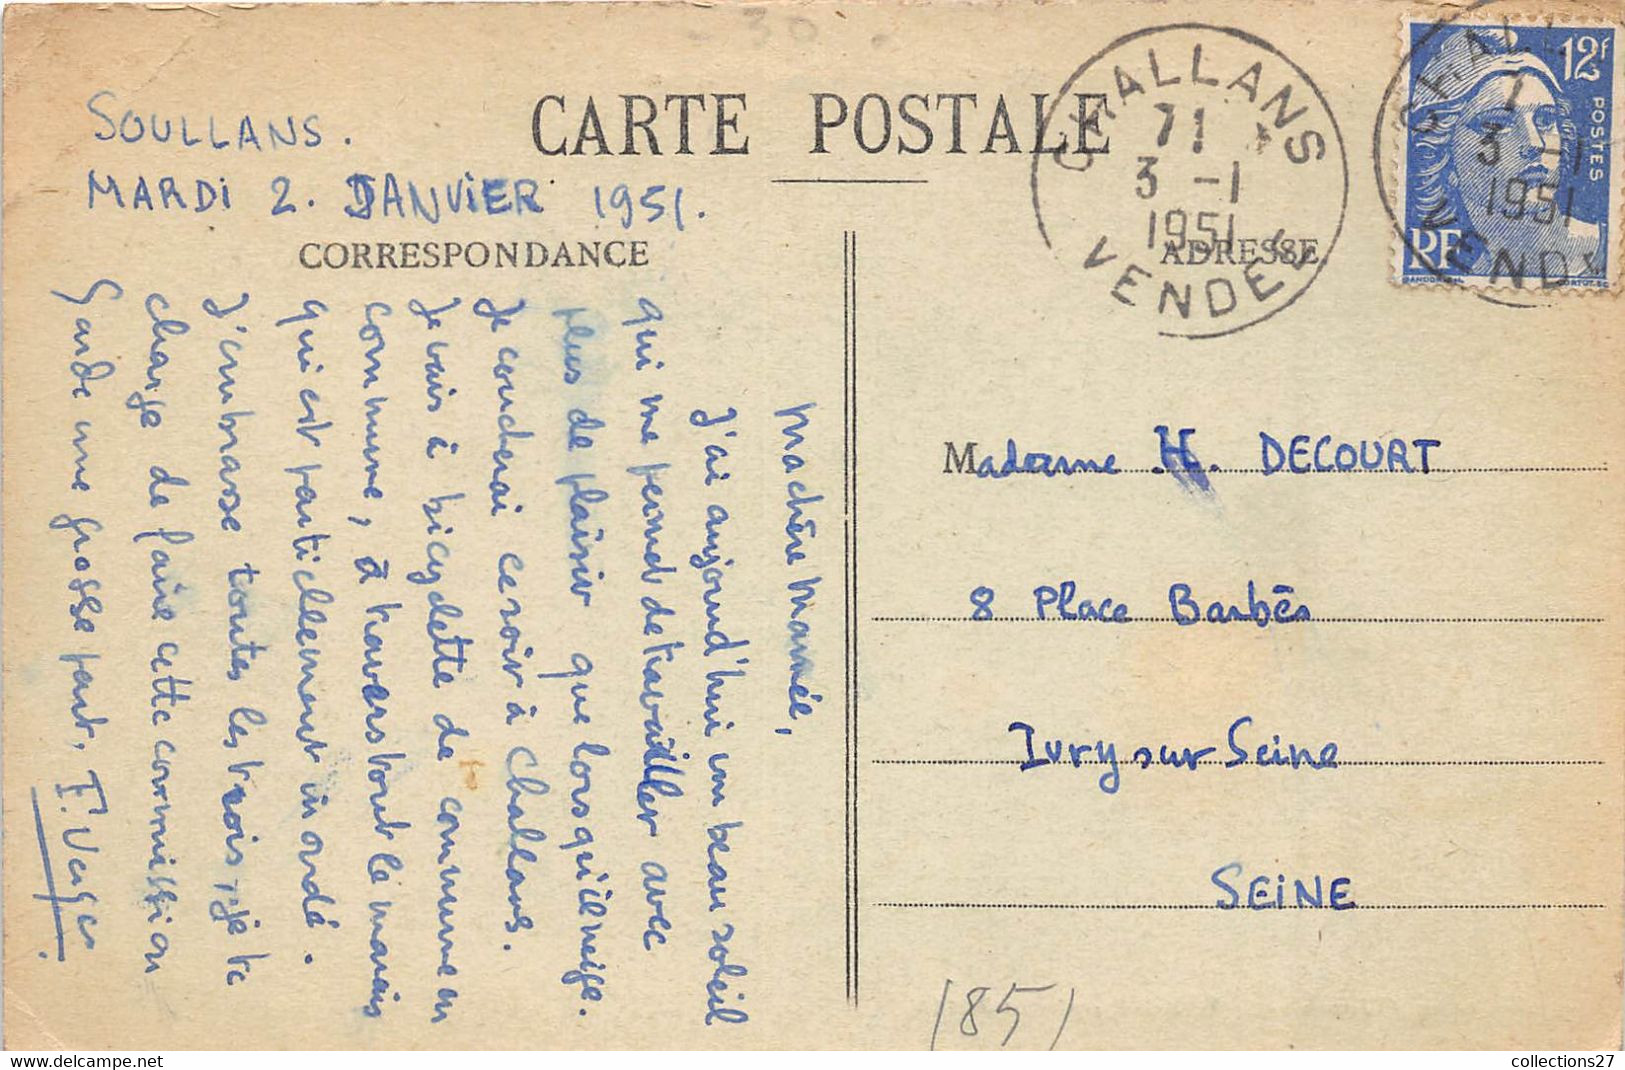 30
CARTE POSTALE
SOULLANS.
MARDI 2. JANVIER 1951.
CORRESPONDANCE
Ma chère Mamée,
J'ai aujourd'hui un beau soleil
qui me permet de travailler avec
plus de plaisir que lorsqu'il neige.
Je coucherai ce soir à Challans.
Je vais à bicyclette de commune en
commune, à travers tout le marais
qui est particlièrement inondé.
J'embrasse toutes les trois, je te
charge de faire cette commission
Garde une grosse part,
CHALLANS
71 *
3 -1
1951
VENDEE
CHALL
3 -1
1951
VENDE
12f
POSTES
RF
ADRESSE
Madame H. DECOURT
8 Place Barbès
Ivry sur Seine
SEINE
(85)
https://www.delcampe.net
collections27